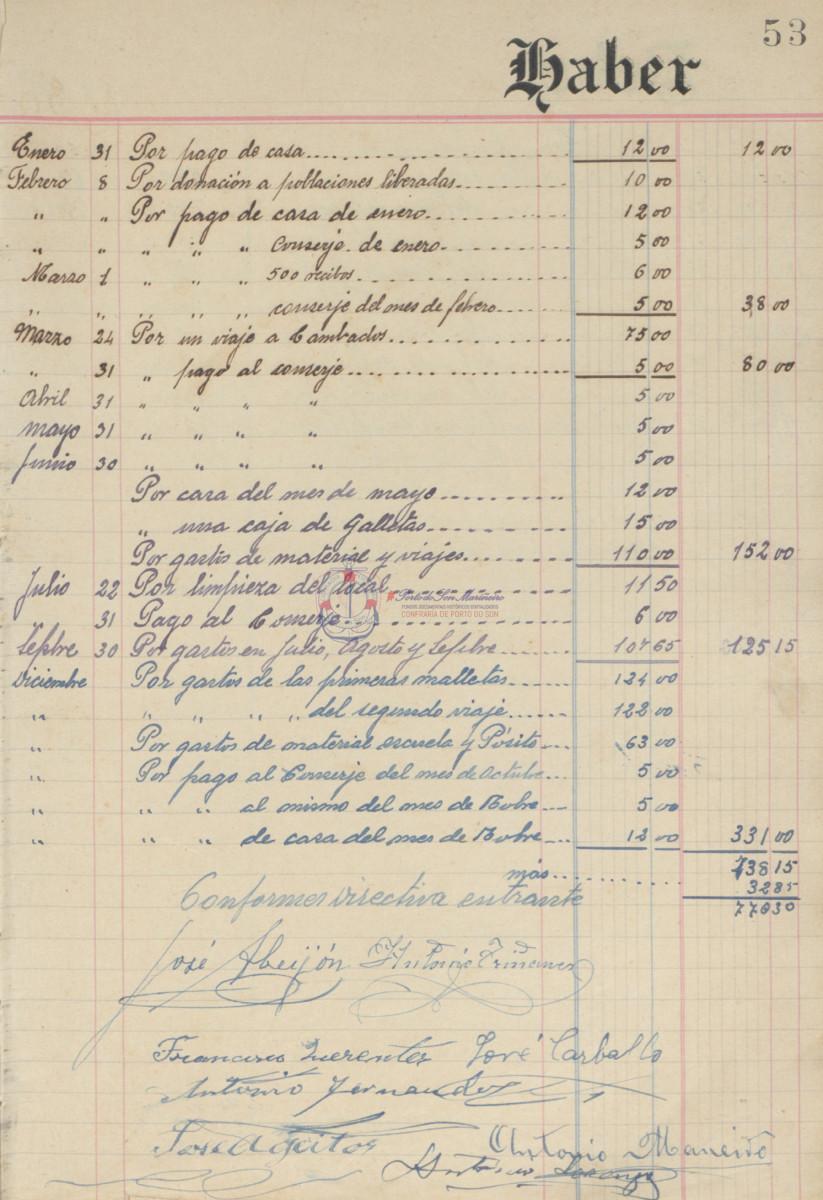 53
Haber
Enero 31 Por pago de casa 12 00 12 00
Febrero 8 Por donación a poblaciones liberadas 10 00
" " Por pago de casa de enero 12 00
" " " " " Conserje de enero 5 00
Marzo 1 " " " 500 recibos 6 00
" " " " " conserje del mes de febrero 5 00 38 00
Marzo 24 Por un viaje a Cambados 75 00
" 31 " pago al conserje 5 00 80 00
Abril 31 " " " " 5 00
Mayo 31 " " " " 5 00
Junio 30 " " " " 5 00
Por casa del mes de mayo 12 00
" una caja de Galletas 15 00
Por gastos de material y viajes 110 00 152 00
Julio 22 Por limpieza del local 11 50
Porto do Son Mariñeiro
FONDOS DOCUMENTAIS HISTÓRICOS DIXITALIZADOS
CONFRARÍA DE PORTO DO SON
31 Pago al Conserje 6 00
Sepbre 30 Por gastos en Julio, Agosto y Sepbre 107 65 125 15
Diciembre Por gastos de las primeras malletas 124 00
" " " " " del segundo viaje 122 00
" Por gastos de material escuela y Pósito 63 00
" Por pago al Conserje del mes de Octube 5 00
" " " al mismo del mes de Nobre 5 00
" " " de casa del mes de Nobre 12 00 331 00
738 15
más 32 85
770 30
Conformes Directiva entrante
José Abeijón Antonio Triñanes
Francisco José Carballo
Antonio Fernandez
Jose Ageitos Antonio Maneiro
Antonio